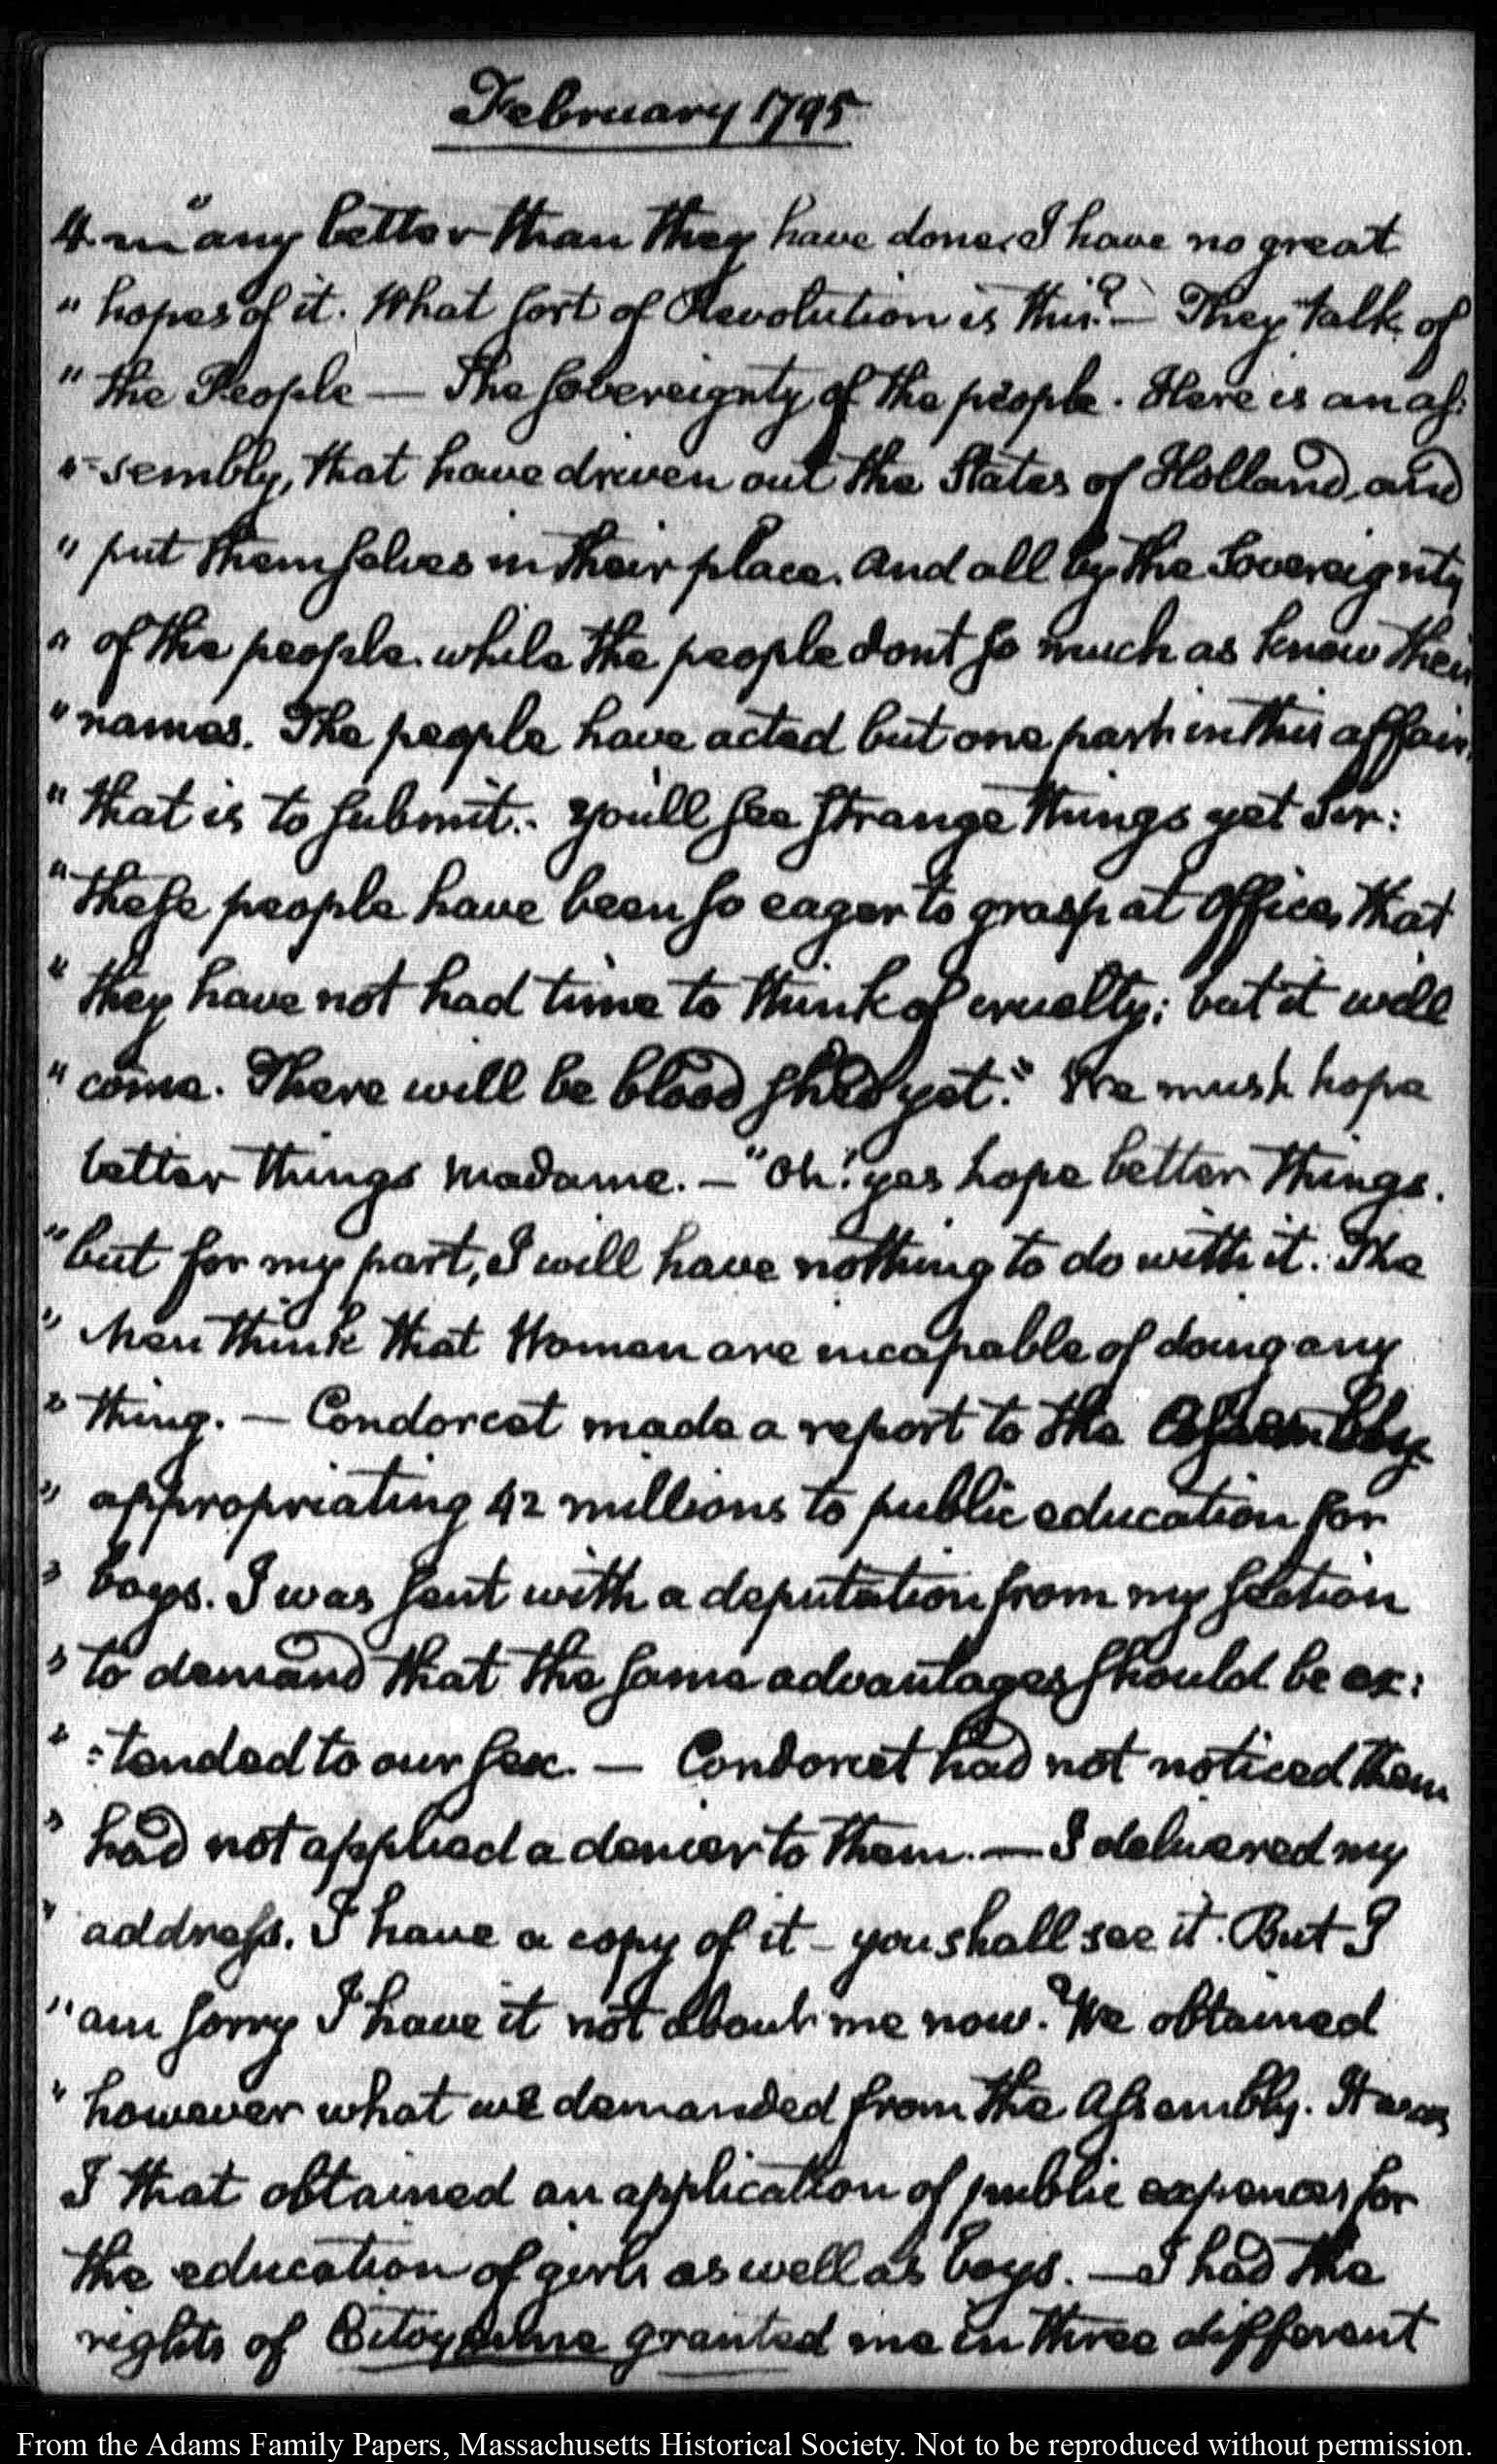 February 1795
4. " any better than they have done. I have no great
" hopes of it. What sort of Revolution is this? — They talk of
" the People — The Sovereignty of the people. Here is an as:
" =sembly, that have driven out the States of Holland, and
" put themselves in their place. And all by the Sovereignty
" of the people. while the people dont so much as know their
" names. The people have acted but one part in this affair,
" that is to submit. - You'll see strange things yet Sir:
" these people have been so eager to grasp at Offices, that
" they have not had time to think of cruelty; but it will
" come. There will be blood shed yet." We must hope
better things Madame. — "Oh! yes hope better things.
" but for my part, I will have nothing to do with it. The
" Men think that Women are incapable of doing any
" thing. — Condorcet made a report to the Assembly
" appropriating 42 millions to public education for
" boys. I was sent with a deputation from my section
" to demand that the same advantages should be ex:
" =tended to our sex. — Condorcet had not noticed them
" had not applied a denier to them. — I delivered my
" address. I have a copy of it - you shall see it. But I
" am sorry I have it not about me now. We obtained
" however what we demanded from the Assembly. It was
I that obtained an application of public expences for
the education of girls as well as boys. — I had the
rights of Citoyenne granted me in three different
From the Adams Family Papers, Massachusetts Historical Society. Not to be reproduced without permission.